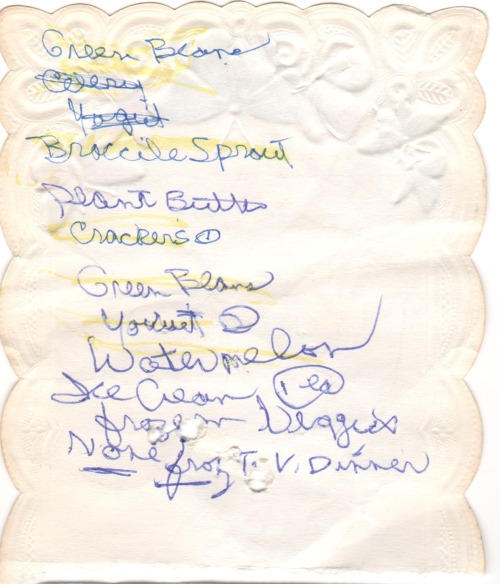 Green Beans
Celery
Yogurt
Broccile Sprout
Plant Butter
Crackers 1
Green Beans
Yogurt 2
Watermelon
Ice Cream 1 ea
frozen Veggies
None froz T. V. Dinner